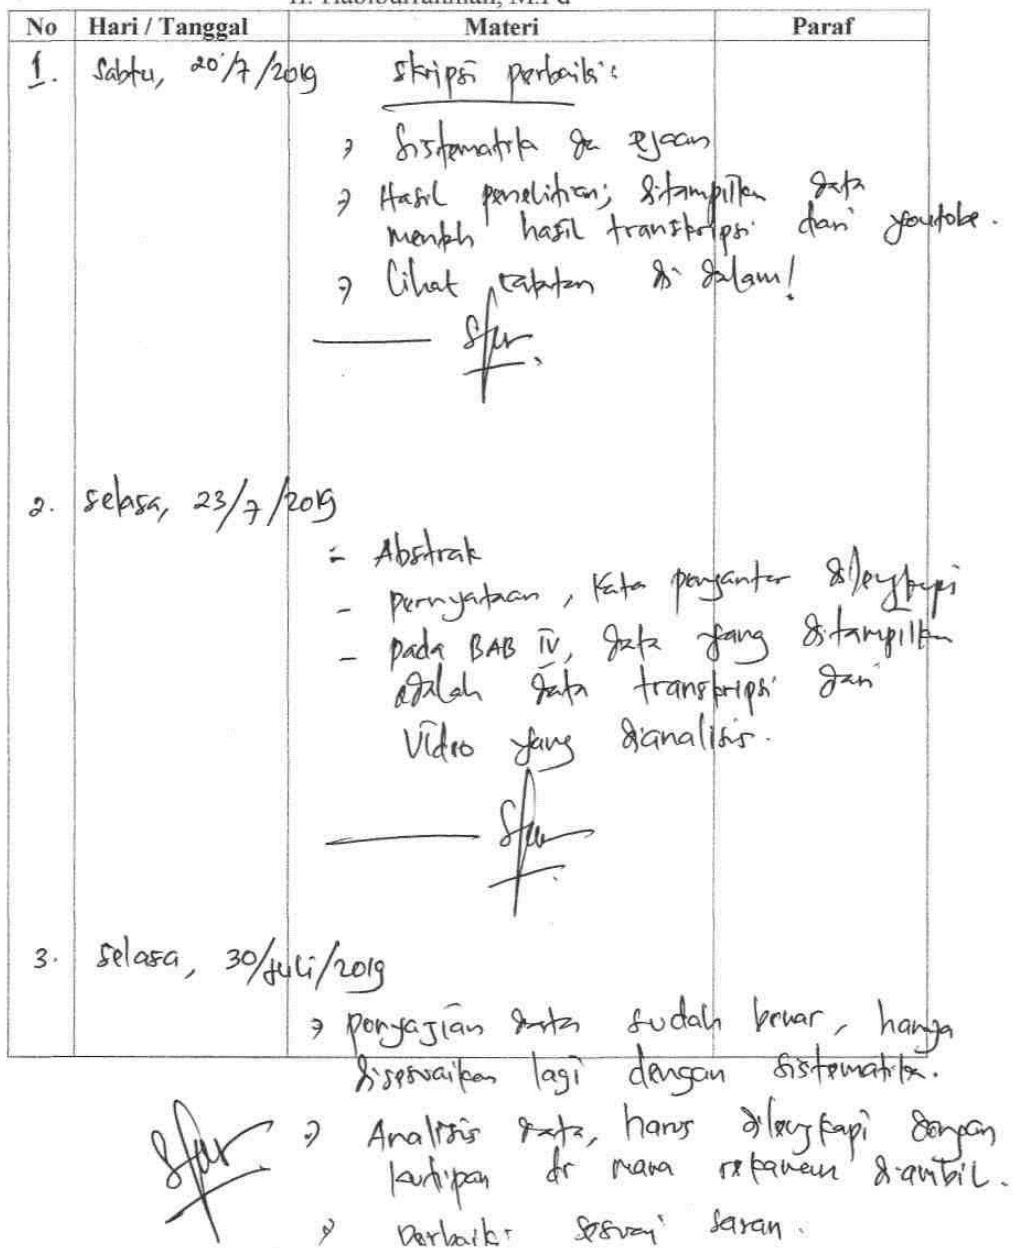 H. Habiburrahman, M.Pd
No Hari / Tanggal Materi Paraf
1. Sabtu, 20/7/2019 Skripsi perbaiki:
→ Sistematika da ejaan
→ Hasil penelitian; ditampilkan data
mentah hasil transkripsi dari youtobe.
→ Lihat catatan di dalam!
2. Selasa, 23/7/2019
- Abstrak
- pernyataan, Kata pengantar dilengkapi
- pada BAB IV, data yang ditampilkan
adalah data transkripsi dari
Vidio yang dianalisis.
3. Selasa, 30/Juli/2019
→ penyajian data sudah benar, hanya
disesuaikan lagi dengan sistematika.
→ Analisis data, harus dilengkapi dengan
kutipan dr mana rekaman diambil.
→ Perbaiki sesuai saran.